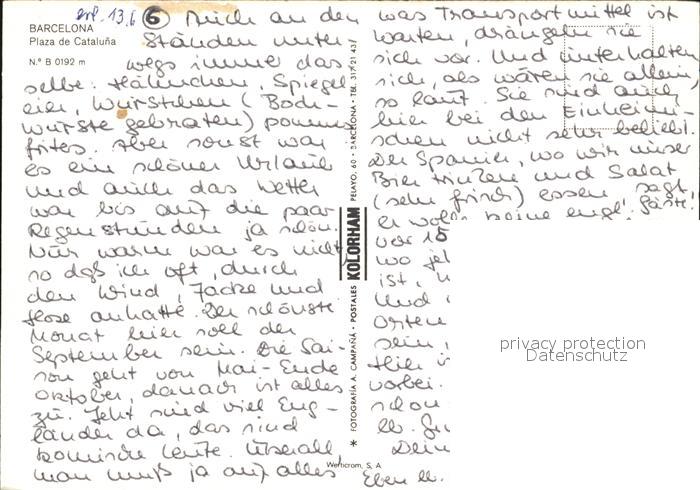 erl. 13.6
BARCELONA
Plaza de Cataluña
N.º B 0192 m
6 Auch an den
Ständen unter-
wegs immer das
selbe: Hähnchen, Spiegel-
eier, Würstchen (Bock-
würste gebraten) pommes
frites. Aber sonst war
es ein schöner Urlaub
und auch das Wetter
war bis auf die paar
Regenstunden ja schön.
Nur warm war es nicht,
so daß ich oft, durch
den Wind, Jacke und
Hose anhatte. Der schönste
Monat hier soll der
September sein. Die Sai-
son geht von Mai-Ende
Oktober, danach ist alles
zu. Jetzt sind viel Eng-
länder da, das sind
komische Leute. Überall,
man muß ja auf alles
* FOTOGRAFIA A. CAMPAÑA • POSTALES KOLORHAM PELAYO, 60 • BARCELONA • TEL. 317 21 43
Werticrom, S. A.
was Transportmittel ist
warten, drängeln sie
sich vor. Und unterhalten
sich, als wären sie allein,
so laut. Sie sind auch
hier bei den Einheimi-
schen nicht sehr beliebt.
Der Spanier, wo wir unser
Bier trinken und Salat
(sehr frisch) essen, sagt,
er wolle keine engl. Gäste!
vor 15
wo
ist,
Und
Orten
sein,
Hier
vorbei.
schon
Dein
Eben
privacy protection
Datenschutz